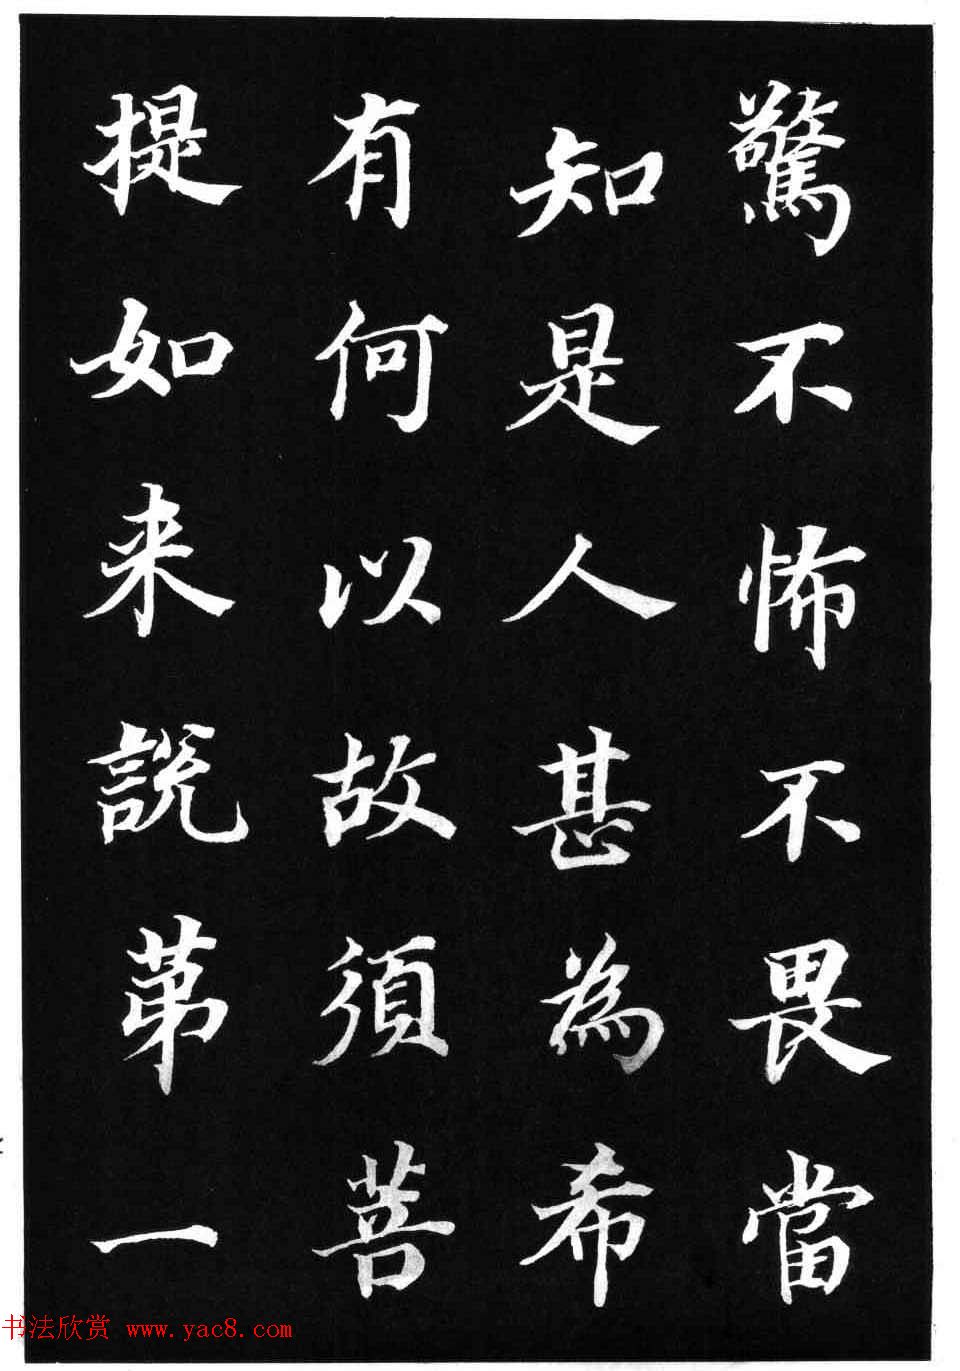 驚不怖不畏當
知是人甚為希
有何以故須菩
提如来説苐一
书法欣赏 www.yac8.com